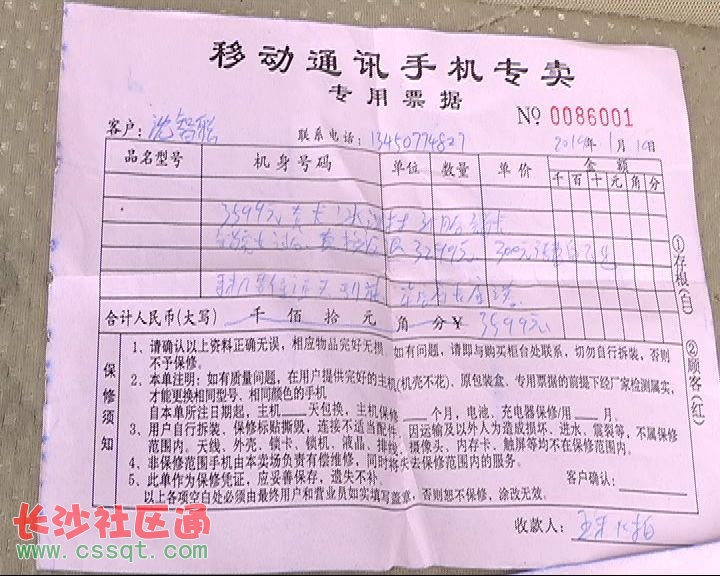 移动通讯手机专卖
专用票据
No 0086001
客户: 沈智聪 联系电话: 13450774827 2014年1月10日
品名型号 机身号码 单位 数量 单价 金额
千 百 十 元 角 分
3599元
3299元 300元
①存根(白)
②顾客(红)
合计人民币(大写) 千 佰 拾 元 角 分 ¥ 3599元
保修须知
1、请确认以上资料正确无误,相应物品完好无损。如有问题,请即与购买柜台处联系,切勿自行拆装,否则
不予保修。
2、本单注明:如有质量问题,在用户提供完好的主机(机壳不花)、原包装盒、专用票据的前提下经厂家检测属实,
才能更换相同型号、相同颜色的手机
自本单所注日期起,主机___天包换,主机保修___个月,电池、充电器保修/用___月。
3、用户自行拆装、保修标贴撕毁,连接不适当配件,因运输及以外人为造成损坏、进水、震裂等,不属保修
范围内。天线、外壳、锁卡、锁机、液晶、排线、摄像头、内存卡、触屏等均不在保修范围内。
4、非保修范围手机由本卖场负责有偿维修,同时将失去保修范围内的服务。
5、此单作为保修凭证,应妥善保存,遗失不补。 客户确认:
以上各项空白处必须由最终用户和营业员如实填写盖章,否则恕不保修,涂改无效。
收款人:
长沙社区通
www.cssqt.com